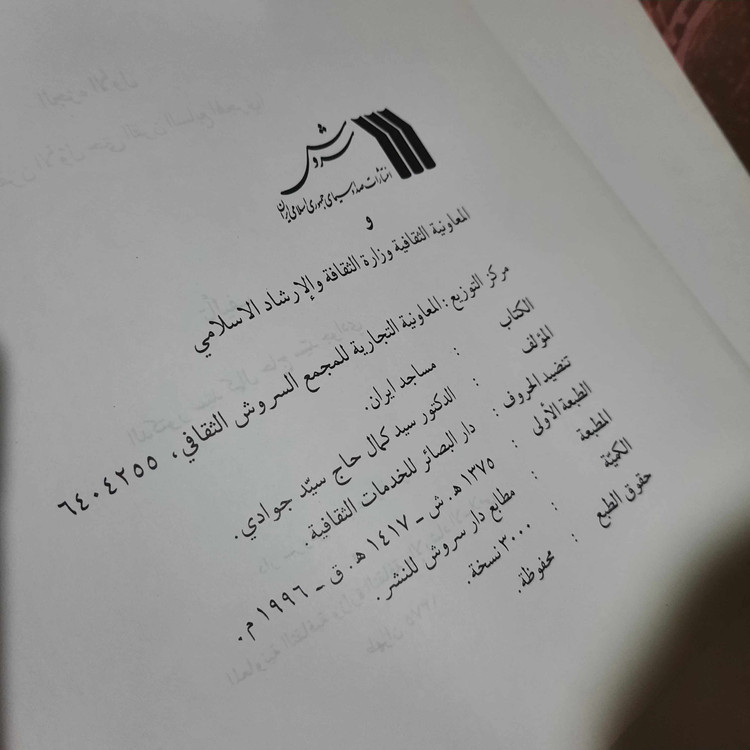 سروش
انتشارات صدا و سیمای جمهوری اسلامی ایران
و
المعاونية الثقافية وزارة الثقافة والإرشاد الاسلامي
مركز التوزيع: المعاونية التجارية للمجمع السروش الثقافي، ٦٤٠٤٢٥٥
الكتاب : مساجد ايران.
المؤلف : الدكتور سيد كمال حاج سيّد جوادي.
تنضيد الحروف : دار البصائر للخدمات الثقافية.
الطبعة الأولى : ١٣٧٥ هـ. ش - ١٤١٧ هـ. ق - ١٩٩٦ م.
المطبعة : مطابع دار سروش للنشر.
الكميّة : ٣٠٠٠ نسخة.
حقوق الطبع : محفوظة.